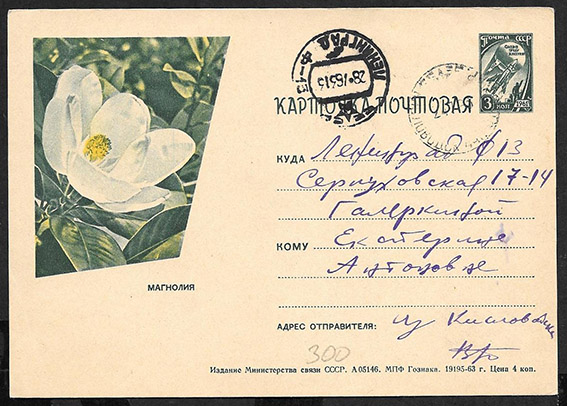 ПОЧТА СССР
3 КОП
ЛЕНИНГРАД
Ф-13
КАРТОЧКА ПОЧТОВАЯ
КУДА Ленинград Ф 13
Серпуховская 17-14
Галеркиной
КОМУ Екатерине
Антоновне
МАГНОЛИЯ
АДРЕС ОТПРАВИТЕЛЯ: из Кисловодска
300
Издание Министерства связи СССР. А 05146. МПФ Гознака. 19195-63 г. Цена 4 коп.